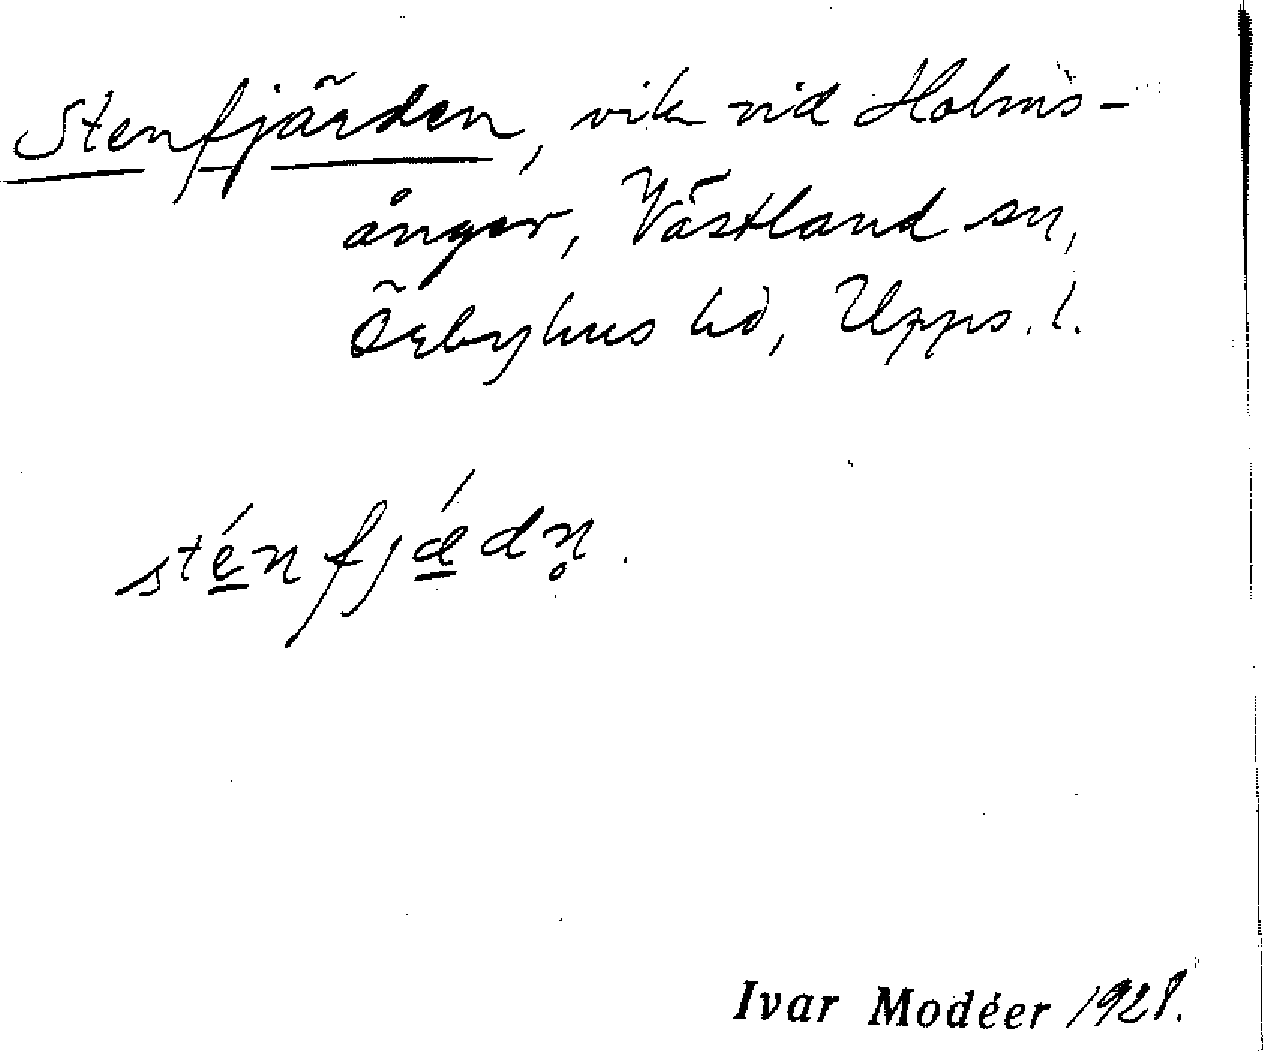 Stenfjärden, vik vid Holms-
ånger, Västland sn,
Örbyhus hd, Upps. l.
sténfjǽdn̥.
Ivar Modéer 1928.